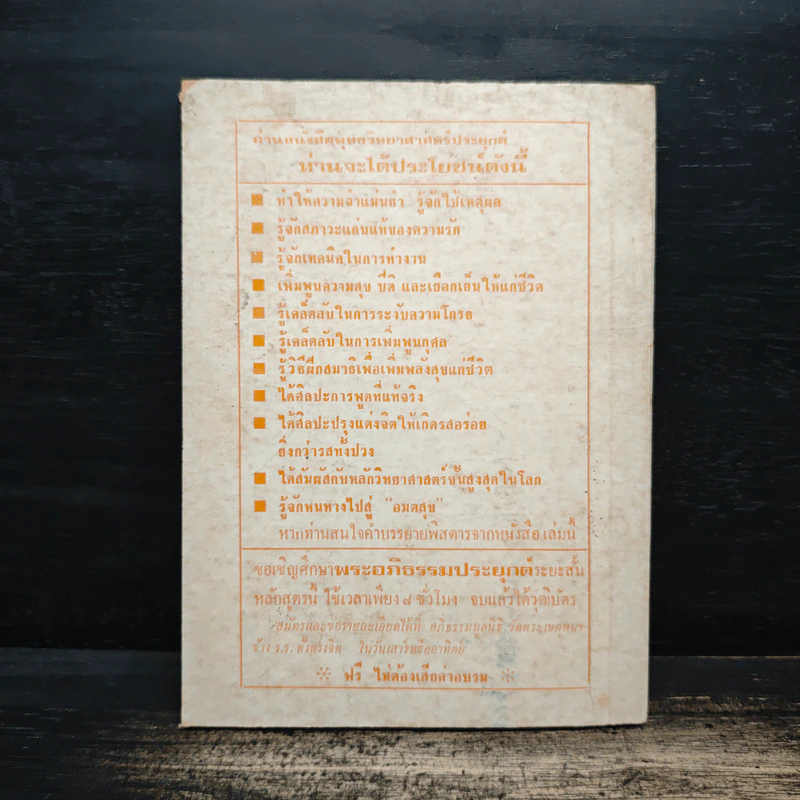 อ่านหนังสือพุทธวิทยาศาสตร์ประยุกต์
ท่านจะได้ประโยชน์ดังนี้
■ ทำให้ความจำแม่นยำ รู้จักใช้เหตุผล
■ รู้จักสภาวะแก่นแท้ของความรัก
■ รู้จักเทคนิคในการทำงาน
■ เพิ่มพูนความสุข ปีติ และเยือกเย็นให้แก่ชีวิต
■ รู้เคล็ดลับในการระงับความโกรธ
■ รู้เคล็ดลับในการเพิ่มพูนกุศล
■ รู้วิธีฝึกสมาธิเพื่อเพิ่มพลังสุขแก่ชีวิต
■ ได้ศิลปะการพูดที่แท้จริง
■ ได้ศิลปะปรุงแต่งจิตให้เกิดรสอร่อย
ยิ่งกว่ารสทั้งปวง
■ ได้สัมผัสกับหลักวิทยาศาสตร์ชั้นสูงสุดในโลก
■ รู้จักหนทางไปสู่ "อมตสุข"
หากท่านสนใจคำบรรยายพิสดารจากหนังสือเล่มนี้
ขอเชิญศึกษาพระอภิธรรมประยุกต์ระยะสั้น
หลักสูตรนี้ ใช้เวลาเพียง ๘ ชั่วโมง จบแล้วได้วุฒิบัตร
สมัครและขอรายละเอียดได้ที่ อภิธรรมมูลนิธิ วัดพระเชตุพนฯ
ข้าง ร.ร. ตั้งตรงจิต ในวันเสาร์หรืออาทิตย์
※ ฟรี ไม่ต้องเสียค่าอบรม ※